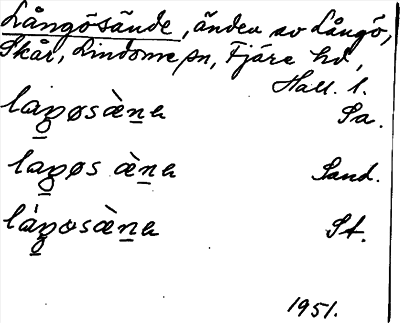 Långösände, änden av Långö,
Skår, Lindome sn, Fjäre hd,
Hall. l.
laŋøsàne Sa.
laŋøs àne Sand.
láŋosàne St.
1951.